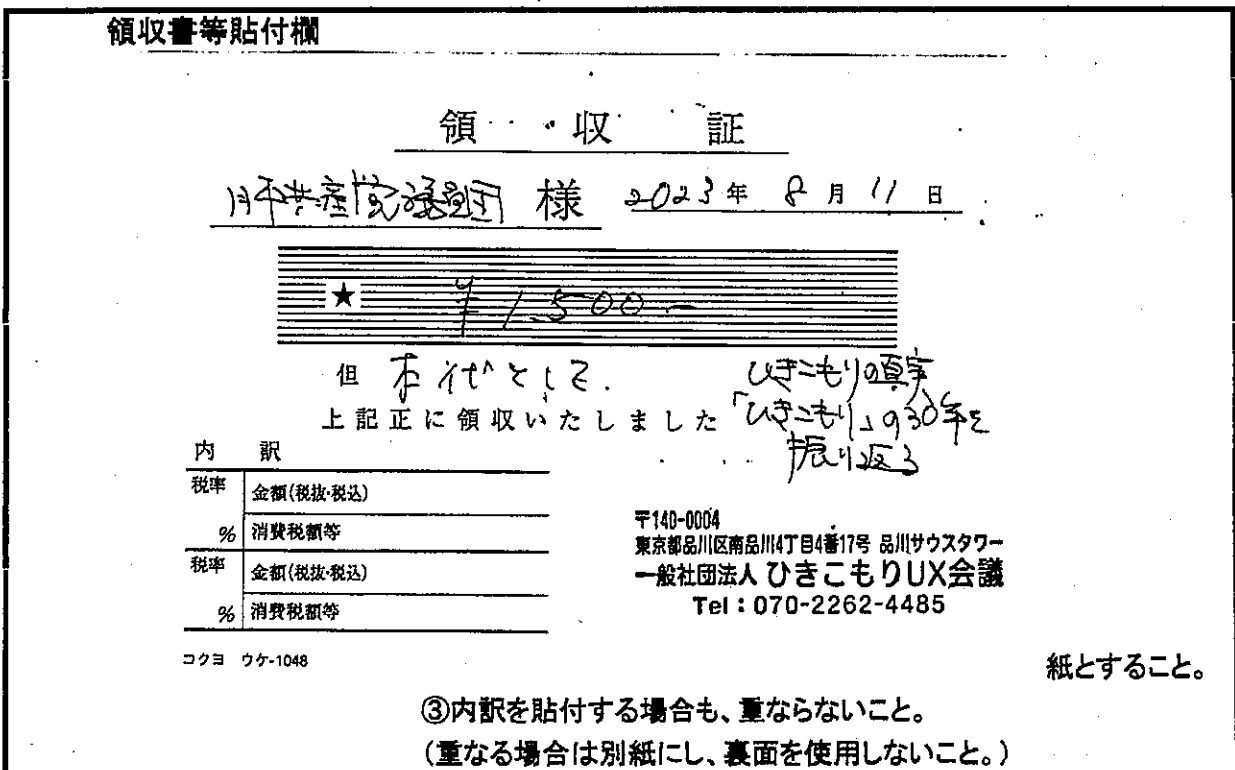 領収書等貼付欄
領 収 証
日本共産党議員団 様 2023年 8月 11日
★ ¥1,500-
但 本代として.
ひきこもりの真実
上記正に領収いたしました
「ひきこもり」の30年を
振り返る
内 訳
税率 金額(税抜・税込)
% 消費税額等
税率 金額(税抜・税込)
% 消費税額等
〒140-0004
東京都品川区南品川4丁目4番17号 品川サウスタワー
一般社団法人 ひきこもりUX会議
Tel:070-2262-4485
コクヨ ウケ-1048
紙とすること。
③内訳を貼付する場合も、重ならないこと。
(重なる場合は別紙にし、裏面を使用しないこと。)